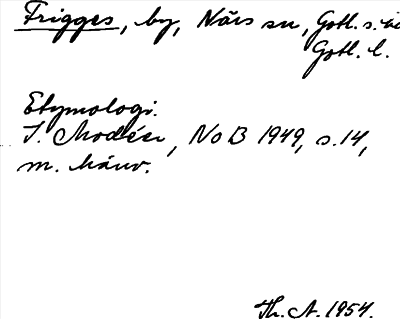 Frigges, by, Närs sn, Gotl. s.
Gotl. l.
Etymologi.
I. Modéer, NoB 1949, s. 14,
m. hänv.
Th. A. 1954.